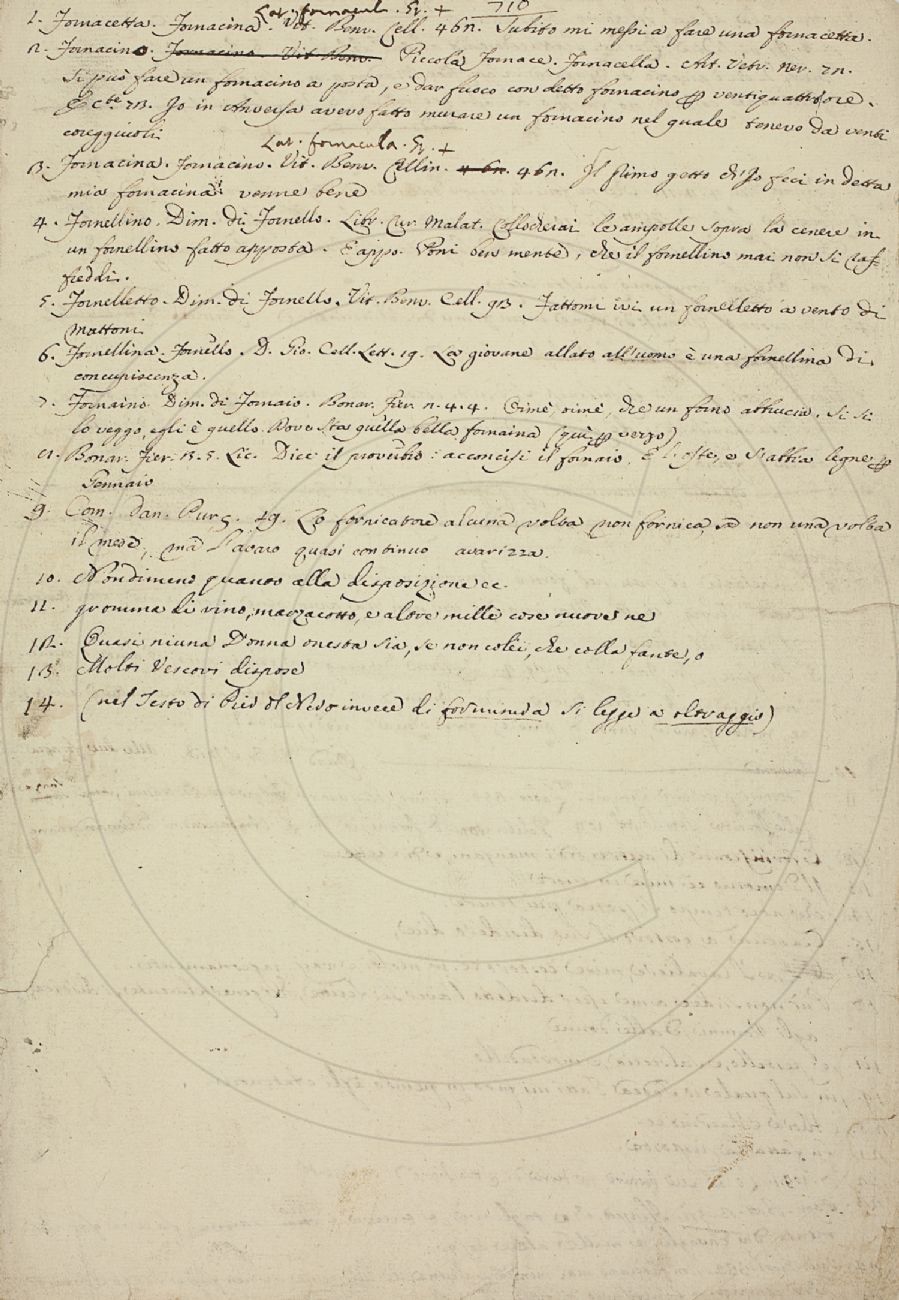 710
Lat. fornacul. Gr. +
1. Fornacetta. Fornacina. Vit. Benv. Cell. 46n. Subito mi messi a fare una fornacetta.
2. Fornacino Fornacino. Vit Benv. Piccola Fornace. Fornacella. Art. Vetr. Ner. 7n.
Si può fare un fornacino a posta, e dar fuoco con detto fornacino ventiquattrore.
E Cte 713. Io in Anversa avevo fatto murare un fornacino nel quale tenevo da venti
coreggiuoli.
Lat. fornacula. Gr. +
3. Fornacina. Fornacino. Vit. Benv. Cellin. 46n. 46n. Il primo getto ch'Io feci in detta
mia fornacina venne bene
4. Fornellino. Dim. di Fornello. Libr. Cur. Malat. Collocherai le ampolle sopra la cenere in
un fornellino fatto apposta. E appo. Poni ben mente, che il fornellino mai non si raf-
freddi.
5. Fornelletto. Dim. di Fornello. Vit. Benv. Cell. 913. Fattomi ivi un fornelletto a vento di
mattoni
6. Fornellina. Fornello. D. Gio. Cell. Lett. 19. La giovane allato all'uomo è una fornellina di
concupiscenza.
7. Fornaino. Dim. di Fornaio. Bonar. Fier. n. 4. 4. Oimè, oimè, che un forno abbrucia. Si si
lo veggo, egli è quello. Dove sta quella bella fornaina (qui verso)
Bonar. Fier. 3. 5. Lic. Dice il proverbio: acconcisi il fornaio, E l'oste, e s'abbia legne
Gennaio
9. Com. Dan. Purg. 19. Lo fornicatore alcuna volta non fornica, se non una volta
il mese, ma l'avaro quasi continuo avarizza.
10. Nondimeno quanto alla disposizione ec.
11. gromma di vino, marzacotto, e altre mille cose nuove ne
12. Quasi niuna Donna onesta sia, se non colei, che colla fante, o
13. Molti Vescovi dispose
14. (nel Testo di Pier del Nero invece di fornimida si legge a oltraggio)